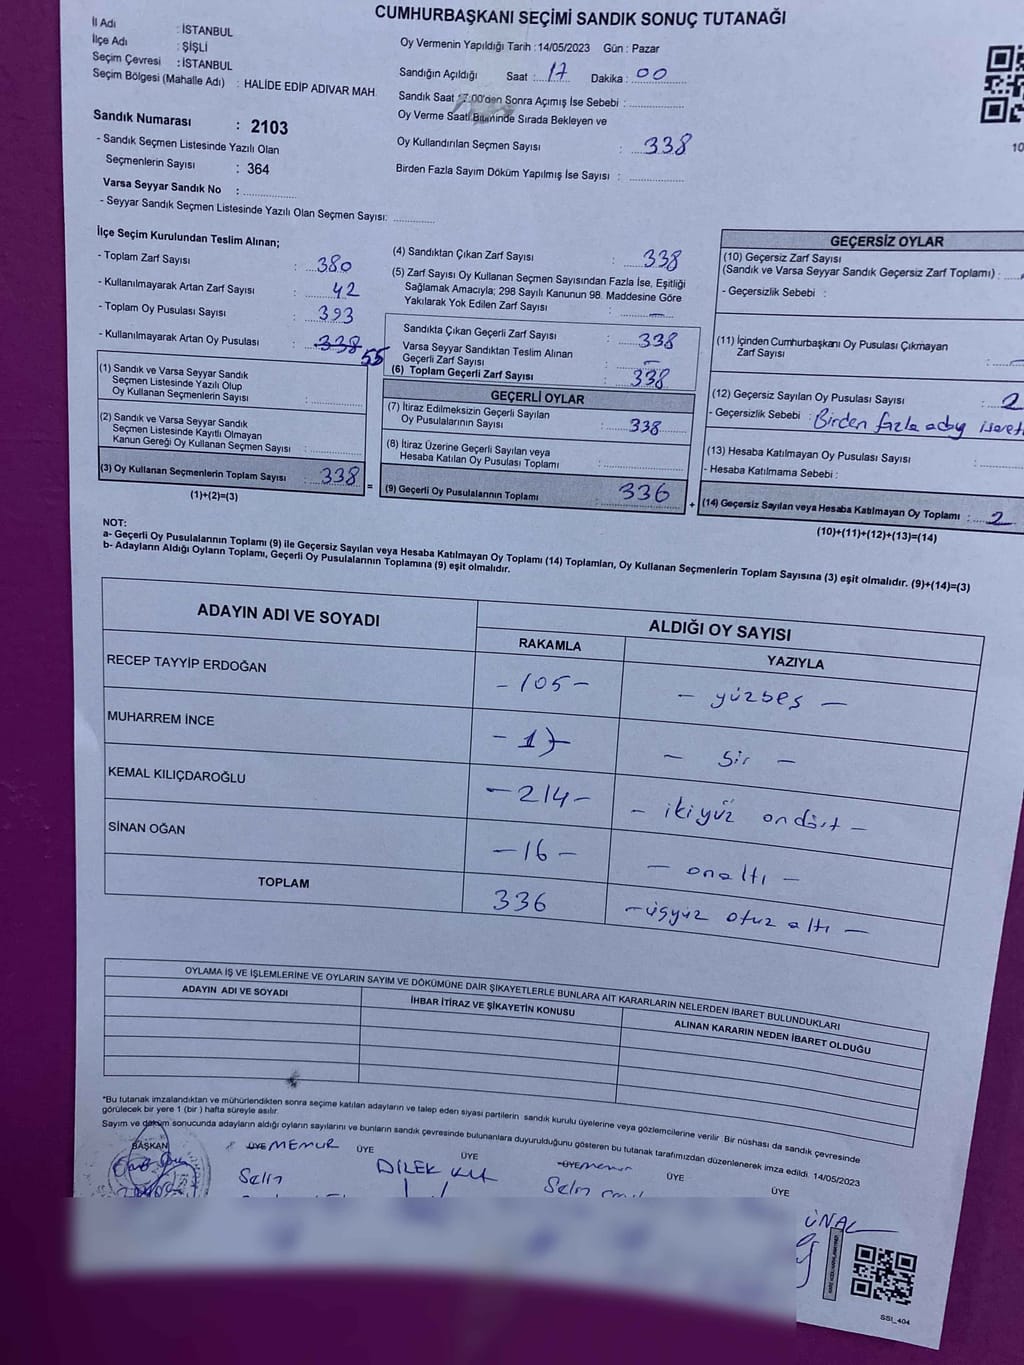 CUMHURBAŞKANI SEÇİMİ SANDIK SONUÇ TUTANAĞI
İl Adı : İSTANBUL
İlçe Adı : ŞİŞLİ
Seçim Çevresi : İSTANBUL
Seçim Bölgesi (Mahalle Adı) : HALİDE EDİP ADIVAR MAH
Sandık Numarası : 2103
- Sandık Seçmen Listesinde Yazılı Olan
Seçmenlerin Sayısı : 364
Varsa Seyyar Sandık No :
- Seyyar Sandık Seçmen Listesinde Yazılı Olan Seçmen Sayısı:
Oy Vermenin Yapıldığı Tarih : 14/05/2023 Gün : Pazar
Sandığın Açıldığı Saat : 17 Dakika : 00
Sandık Saat 17:00'den Sonra Açımış İse Sebebi :
Oy Verme Saati Bitiminde Sırada Bekleyen ve
Oy Kullandırılan Seçmen Sayısı : 338
Birden Fazla Sayım Döküm Yapılmış İse Sayısı :
10
İlçe Seçim Kurulundan Teslim Alınan;
- Toplam Zarf Sayısı : 380
- Kullanılmayarak Artan Zarf Sayısı : 42
- Toplam Oy Pusulası Sayısı : 393
- Kullanılmayarak Artan Oy Pusulası : 338 55
(1) Sandık ve Varsa Seyyar Sandık
Seçmen Listesinde Yazılı Olup
Oy Kullanan Seçmenlerin Sayısı :
(2) Sandık ve Varsa Seyyar Sandık
Seçmen Listesinde Kayıtlı Olmayan
Kanun Gereği Oy Kullanan Seçmen Sayısı :
(3) Oy Kullanan Seçmenlerin Toplam Sayısı : 338
(1)+(2)=(3)
(4) Sandıktan Çıkan Zarf Sayısı : 338
(5) Zarf Sayısı Oy Kullanan Seçmen Sayısından Fazla İse, Eşitliği
Sağlamak Amacıyla; 298 Sayılı Kanunun 98. Maddesine Göre
Yakılarak Yok Edilen Zarf Sayısı : —
Sandıkta Çıkan Geçerli Zarf Sayısı : 338
Varsa Seyyar Sandıktan Teslim Alınan
Geçerli Zarf Sayısı : —
(6) Toplam Geçerli Zarf Sayısı : 338
GEÇERLİ OYLAR
(7) İtiraz Edilmeksizin Geçerli Sayılan
Oy Pusulalarının Sayısı : 338
(8) İtiraz Üzerine Geçerli Sayılan veya
Hesaba Katılan Oy Pusulası Toplamı :
(9) Geçerli Oy Pusulalarının Toplamı : 336
GEÇERSİZ OYLAR
(10) Geçersiz Zarf Sayısı
(Sandık ve Varsa Seyyar Sandık Geçersiz Zarf Toplamı) :
- Geçersizlik Sebebi :
(11) İçinden Cumhurbaşkanı Oy Pusulası Çıkmayan
Zarf Sayısı : —
(12) Geçersiz Sayılan Oy Pusulası Sayısı : 2
- Geçersizlik Sebebi : Birden fazla aday
(13) Hesaba Katılmayan Oy Pusulası Sayısı :
- Hesaba Katılmama Sebebi :
(14) Geçersiz Sayılan veya Hesaba Katılmayan Oy Toplamı : 2
(10)+(11)+(12)+(13)=(14)
NOT:
a- Geçerli Oy Pusulalarının Toplamı (9) ile Geçersiz Sayılan veya Hesaba Katılmayan Oy Toplamı (14) Toplamları, Oy Kullanan Seçmenlerin Toplam Sayısına (3) eşit olmalıdır. (9)+(14)=(3)
b- Adayların Aldığı Oyların Toplamı, Geçerli Oy Pusulalarının Toplamına (9) eşit olmalıdır.
ADAYIN ADI VE SOYADI
ALDIĞI OY SAYISI
RAKAMLA YAZIYLA
RECEP TAYYİP ERDOĞAN - 105 - - yüzbeş -
MUHARREM İNCE - 1 - - bir -
KEMAL KILIÇDAROĞLU - 214 - - ikiyüz ondört -
SİNAN OĞAN - 16 - - onaltı -
TOPLAM 336 - üçyüz otuz altı -
OYLAMA İŞ VE İŞLEMLERİNE VE OYLARIN SAYIM VE DÖKÜMÜNE DAİR ŞİKAYETLERLE BUNLARA AİT KARARLARIN NELERDEN İBARET BULUNDUKLARI
ADAYIN ADI VE SOYADI
İHBAR İTİRAZ VE ŞİKAYETİN KONUSU
ALINAN KARARIN NEDEN İBARET OLDUĞU
*Bu tutanak imzalandıktan ve mühürlendikten sonra seçime katılan adayların ve talep eden siyasi partilerin sandık kurulu üyelerine veya gözlemcilerine verilir Bir nüshası da sandık çevresinde
görülecek bir yere 1 (bir ) hafta süreyle asılır.
Sayım ve döküm sonucunda adayların aldığı oyların sayılarını ve bunların sandık çevresinde bulunanlara duyurulduğunu gösteren bu tutanak tarafımızdan düzenlenerek imza edildi. 14/05/2023
BAŞKAN ÜYE MEMUR ÜYE ÜYE ÜYE memur ÜYE ÜYE
Selin DİLEK Selin ÜNAL
SSI_404